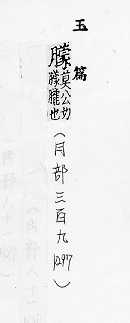 玉篇
朦莫公切
朦朧也
（月部三百九）